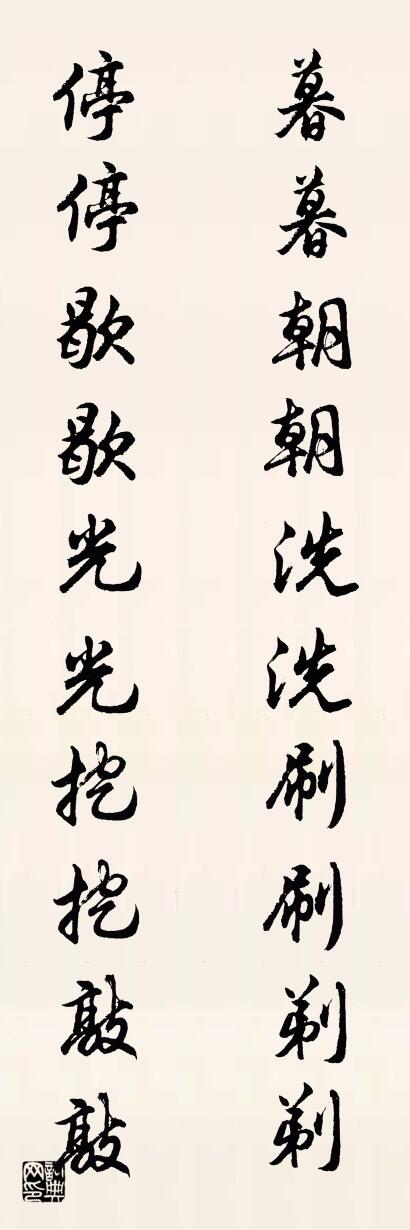 暮暮朝朝洗洗刷刷剃剃
停停歇歇光光挖挖敲敲